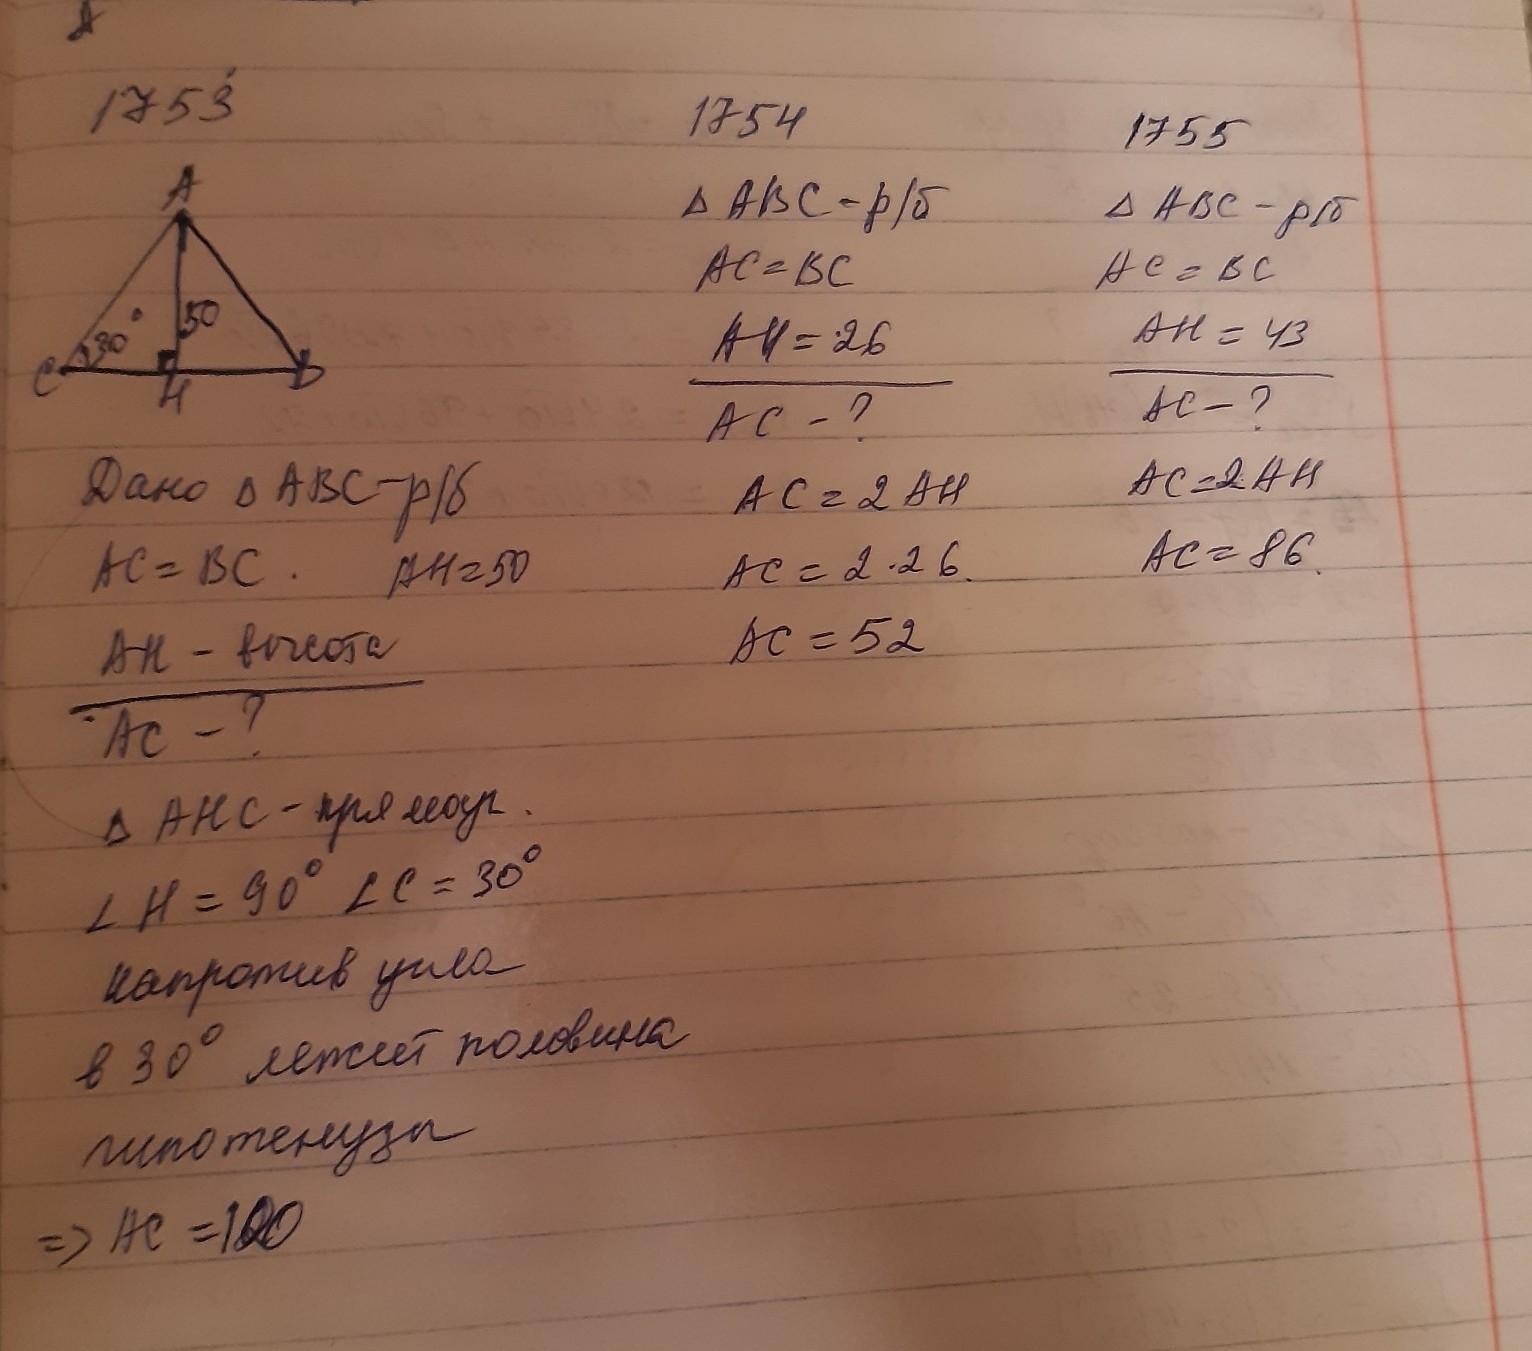 1753
A
30° 50
C H B
Дано Δ ABC-р/б
AC = BC. AH=50
AH - высота
AC - ?
Δ AHC - прямоуг.
∠ H = 90° ∠ C = 30°
напротив угла
в 30° лежит половина
гипотенузы
=> AC =100
1754
Δ ABC - р/б
AC = BC
AH = 26
AC - ?
AC = 2 AH
AC = 2·26.
AC = 52
1755
Δ ABC - р/б
AC = BC
AH = 43
AC - ?
AC=2AH
AC = 86.